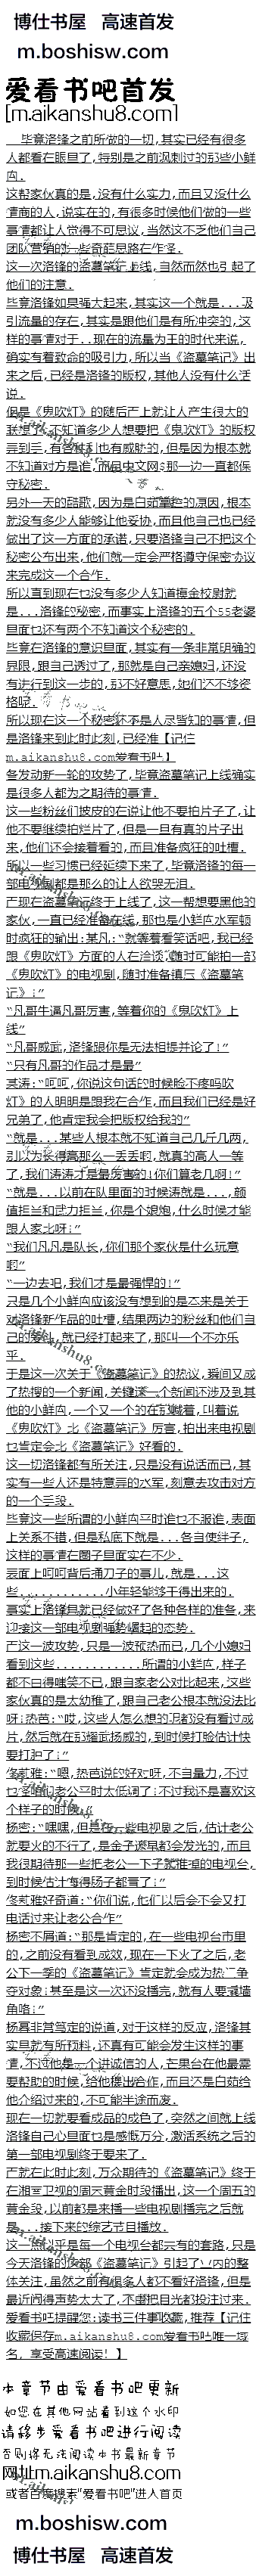 博仕书屋 高速首发
m.boshisw.com
爱看书吧首发
[m.aikanshu8.com]
毕竟洛锋之前所做的一切,其实已经有很多
人都看在眼里了,特别是之前讽刺过的那些小鲜
肉.
这帮家伙真的是,没有什么实力,而且又没什么
情商的人,说实在的,有很多时候他们做的一些
事情都让人觉得不可思议,当然这不乏他们自己
团队营销的一些奇葩思路在作怪.
这一次洛锋的盗墓笔记上线,当然而然也引起了
他们的注意.
毕竟洛锋如果强大起来,其实这一个就是...吸
引流量的存在,其实是跟他们是有所冲突的,这
样的事情对于..现在的流量为王的时代来说,
确实有着致命的吸引力,所以当《盗墓笔记》出
来之后,已经是洛锋的版权,其他人没有什么话
说.
但是《鬼吹灯》的随后产上就让人产生很大的
联想了,不知道多少人想要把《鬼吹灯》的版权
弄到手,有各种利也有威胁的,但是因为根本就
不知道对方是谁,而且中文网s那一边一直都保
守秘密.
另外一天的酷歌,因为是白茹董边的原因,根本
就没有多少人能够让他妥协,而且他自己也已经
做出了这一方面的承诺,只要洛锋自己不把这个
秘密公布出来,他们就一定会严格遵守保密协议
来完成这一个合作.
所以直到现在也没有多少人知道摸金校尉就
是...洛锋的秘密,而事实上洛锋的五个55老婆
里面也还有两个不知道这个秘密的.
毕竟在洛锋的意识里面,其实有一条非常明确的
界限,跟自己透过了,那就是自己亲媳妇,还没
有进行到这一步的,那不好意思,她们还不够资
格呢.
所以现在这一个秘密还不是人尽皆知的事情,但
是洛锋来到此时此刻,已经准【记住
m.aikanshu8.com爱看书吧】
备发动新一轮的攻势了,毕竟盗墓笔记上线确实
是很多人都为之期待的事情.
这一些粉丝们披皮的在说让他不要拍片子了,让
他不要继续拍烂片了,但是一旦有真的片子出
来,他们还会接着看的,而且准备疯狂的吐槽.
所以一些习惯已经延续下来了,毕竟洛锋的每一
部电视剧都是那么的让人欲哭无泪.
而现在盗墓笔记终于上线了,这一帮想要黑他的
家伙,一直已经准备在线,那也是小鲜肉水军顿
时疯狂的输出:某凡:“就等着看笑话吧,我已经
跟《鬼吹灯》方面的人在洽谈,随时可能拍一部
《鬼吹灯》的电视剧,随时准备镇压《盗墓笔
记》!”
“凡哥牛逼凡哥厉害,等着你的《鬼吹灯》上
线”
“凡哥威武,洛锋跟你是无法相提并论了!”
“只有凡哥的作品才是最”
某涛:“呵呵,你说这句话的时候脸不疼吗吹
灯》的人明明是跟我在合作,而且我们已经是好
兄弟了,他肯定我会把版权给我的”
“就是...某些人根本就不知道自己几斤几两,
引以为装得高那么一丢丢啊,就真的高人一等
了,我们涛涛才是最厉害的!你们算老几啊!”
“就是...以前在队里面的时候涛就是...,颜
值担当和武力担当,你是个娘炮,什么时候才能
跟人家比呀!”
“我们凡凡是队长,你们那个家伙是什么玩意
啊”
“一边去吧,我们才是最强悍的!”
只是几个小鲜肉应该没有想到的是本来是关于
对洛锋新作品的吐槽,结果两边的粉丝和他们自
己的爱豆,就已经打起来了,那叫一个不亦乐
乎.
于是这一次关于《盗墓笔记》的热议,瞬间又成
了热搜的一个新闻,关键这一个新闻还涉及到其
他的小鲜肉,一个又一个的在叫喊着,叫着说
《鬼吹灯》比《盗墓笔记》厉害,拍出来电视剧
也肯定会比《盗墓笔记》好看的.
这一切洛锋都有所关注,只是没有说话而已,其
实有一些人还是特意弄的水军,刻意去攻击对方
的一个手段.
毕竟这一些所谓的小鲜肉平时谁也不服谁,表面
上关系不错,但是私底下就是...各自使绊子,
这样的事情在圈子里面实在不少.
表面上呵呵背后捅刀子的事儿,就是...这
些............小年轻能够干得出来的.
事实上洛锋早就已经做好了各种各样的准备,来
迎接这一部电视剧强势崛起的态势.
而这一波攻势,只是一波预热而已,几个小媳妇
看到这些............所谓的小鲜肉,样子
都不由得嗤笑不已,跟自家老公对比起来,这些
家伙真的是太幼稚了,跟自己老公根本就没法比
呀!热芭:“哎,这些人怎么想的呢都没有看过成
片,然后就在那耀武扬威的,到时候打脸估计快
要打肿了!”
佟莉雅:“嗯,热芭说的好对呀,不自量力,不过
也怪咱们老公平时太低调了!不过我还是喜欢这
个样子的时候.”
杨密:“嘿嘿,但是在一些电视剧之后,估计老公
就要火的不行了,是金子迟早都会发光的,而且
我很期待那一些把老公一下子就推掉的电视台,
到时候估计悔得肠子都青了!”
佟莉雅好奇道:“你们说,他们以后会不会又打
电话过来让老公合作”
杨密不屑道:“那是肯定的,在一些电视台市里
的,之前没有看到成效,现在一下火了之后,老
公下一季的《盗墓笔记》肯定就会成为热门争
夺对象!甚至是这一次还没播完,就有人要撬墙
角咯!”
杨幂非常笃定的说道,对于这样的反应,洛锋其
实早就有所预料,还真有可能会发生这样的事
情,不过他是一个讲诚信的人,芒果台在他最需
要帮助的时候,给他提出合作,而且还是白茹给
他介绍过来的,不可能半途而废.
现在一切就要看成品的成色了,突然之间就上线
洛锋自己心里面也是感慨万分,激活系统之后的
第一部电视剧终于要来了.
而就在此时此刻,万众期待的《盗墓笔记》终于
在湘南卫视的周天黄金时段播出,这一个周五的
黄金段,以前都是来播一些电视剧播完之后就
是...接下来的综艺节目播放.
这一点似乎是每一个电视台都会有的套路,只是
今天洛锋的这部《盗墓笔记》引起了业内的整
体关注,虽然之前有很多人都不看好洛锋,但是
最近闹得声势太大了,不由把目光都投注过来.
爱看书吧提醒您:读书三件事收藏,推荐【记住
收藏保存m.aikanshu8.com爱看书吧唯一域
名，享受高速阅读！】
本章节由爱看书吧更新
如您在其他网站看到这个水印
请移步爱看书吧进行阅读
否则将无法阅读本书最新章节
网址m.aikanshu8.com
或者百度搜索“爱看书吧”进入首页
m.boshisw.com
博仕书屋 高速首发